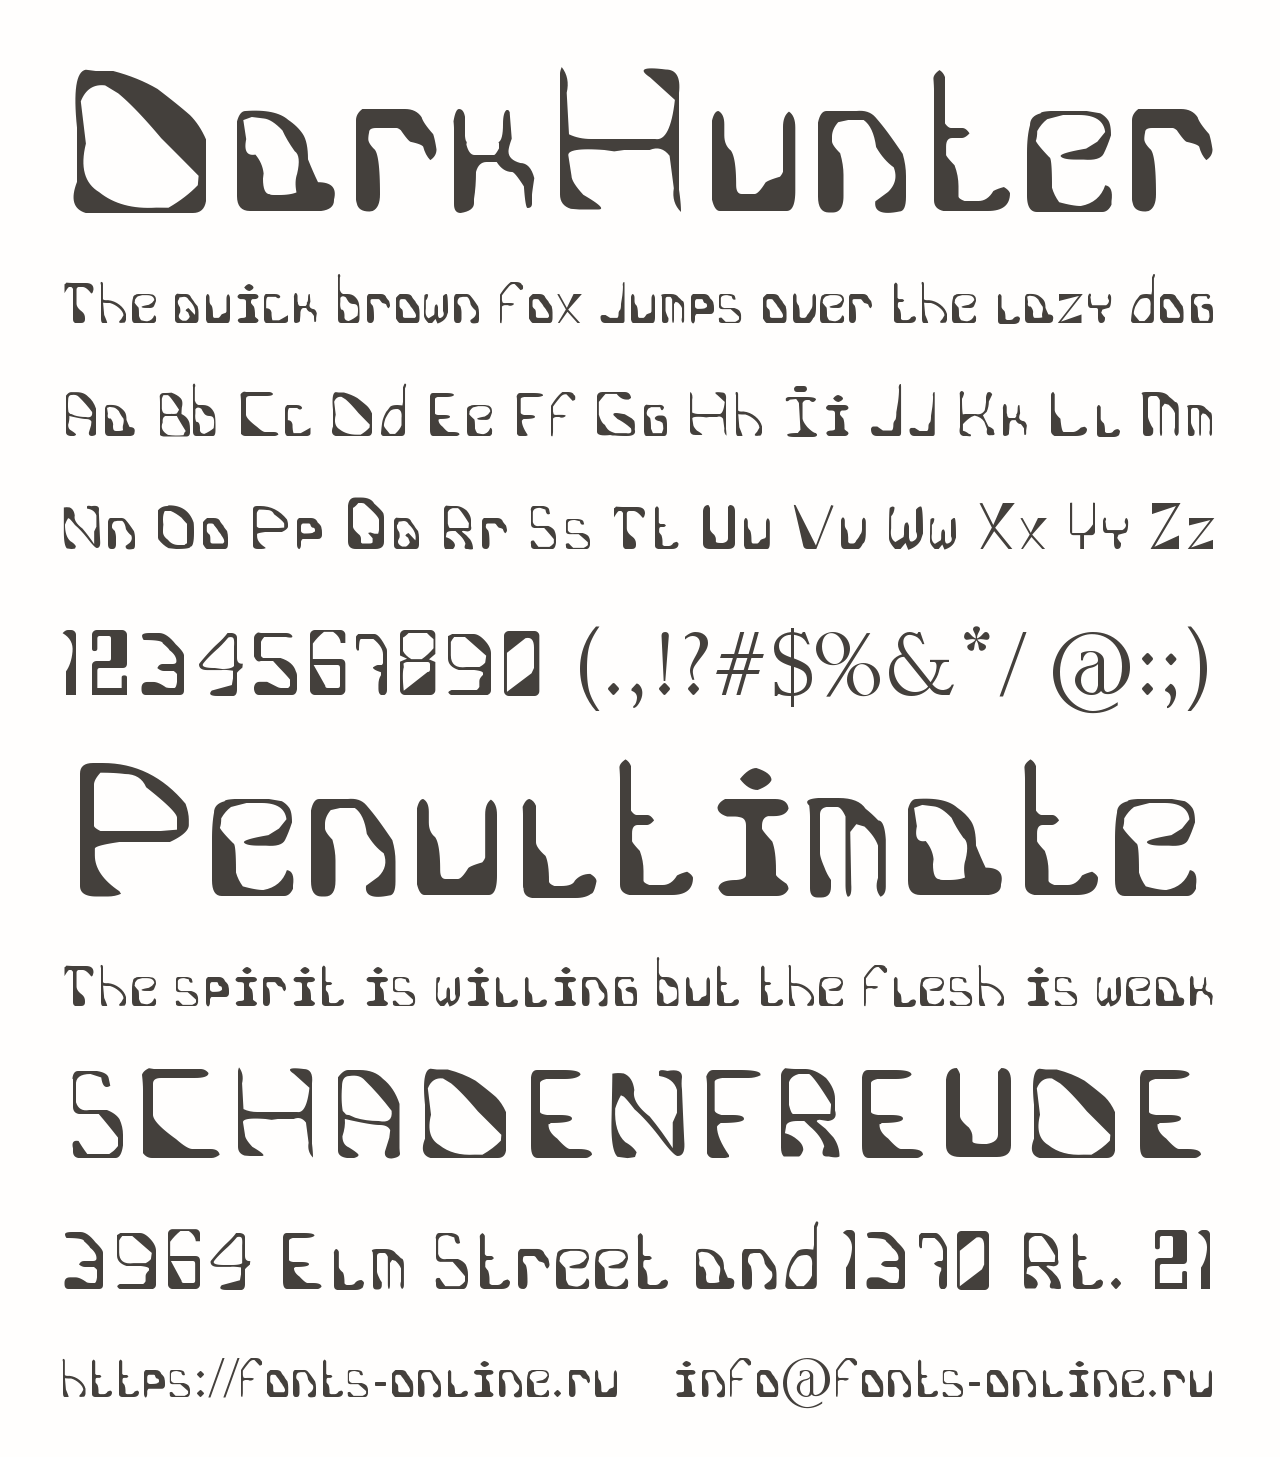 DarkHunter
The quick brown fox jumps over the lazy dog
Aa Bb Cc Dd Ee Ff Gg Hh Ii Jj Kk Ll Mm
Nn Oo Pp Qq Rr Ss Tt Uu Vv Ww Xx Yy Zz
1234567890 (.,!?#$%&*/ @:;)
Penultimate
The spirit is willing but the flesh is weak
SCHADENFREUDE
3964 Elm Street and 1370 Rt. 21
https://fonts-online.ru info@fonts-online.ru